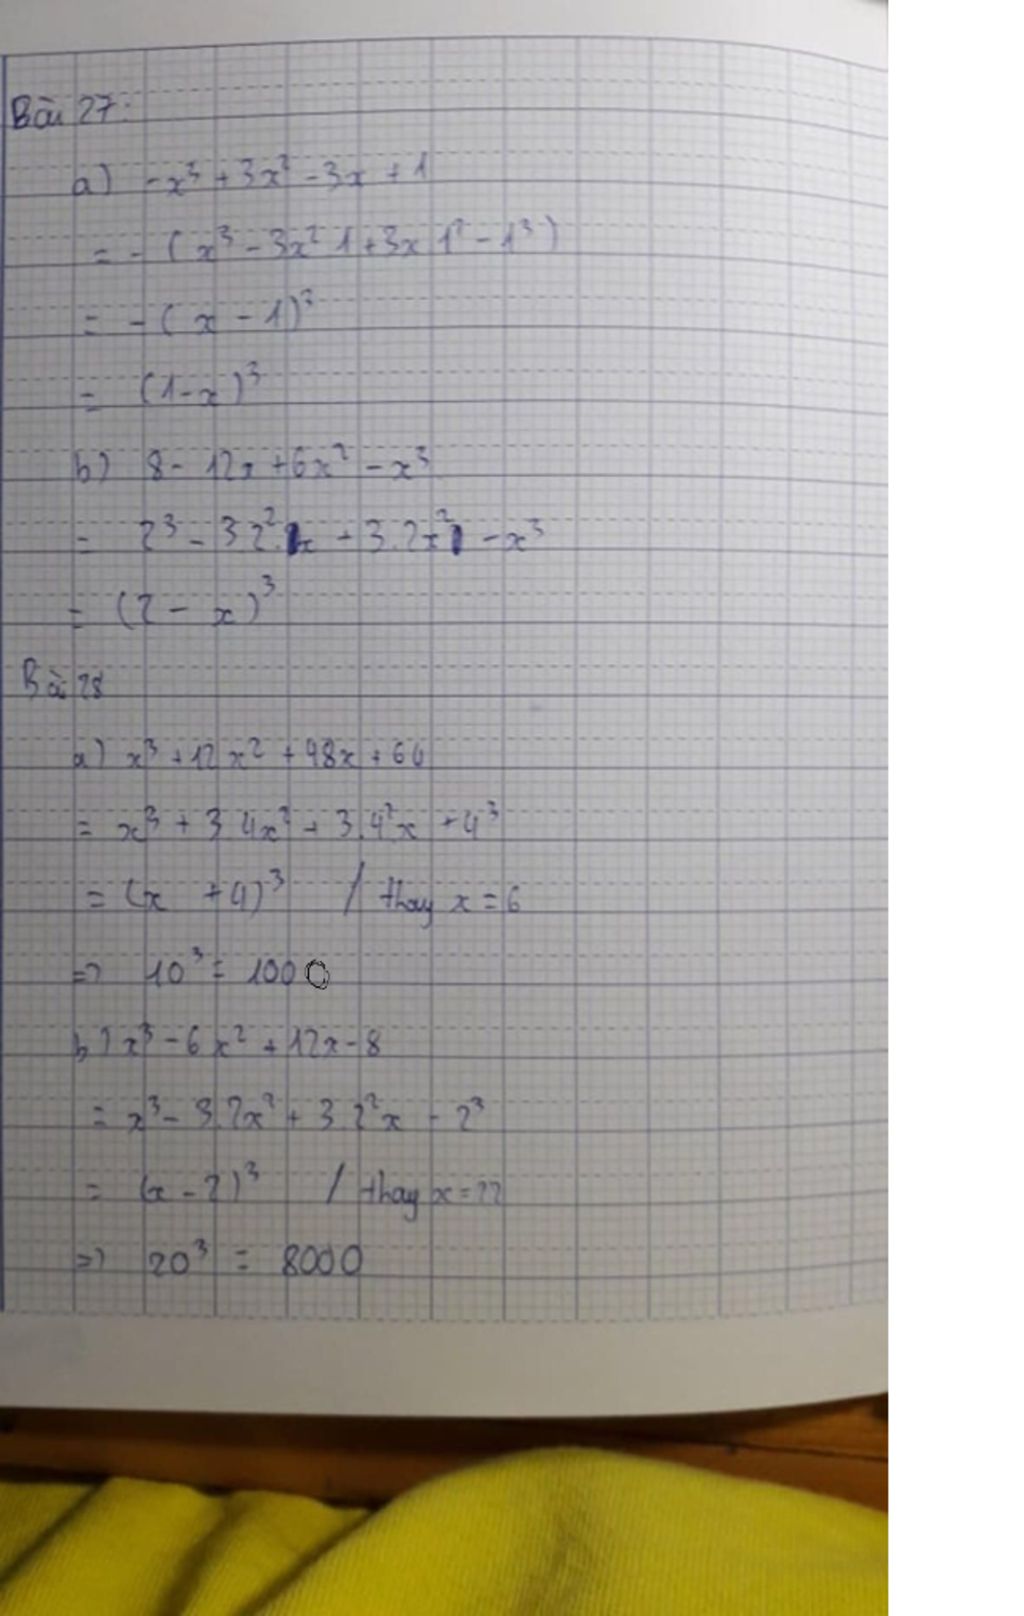 Bài 27:
a) -x³ + 3x² - 3x + 1
= - (x³ - 3x² 1 + 3x 1² - 1³)
= - (x - 1)³
= (1 - x)³
b) 8 - 12x + 6x² - x³
= 2³ - 3 2². x + 3.2x² - x³
= (2 - x)³
Bài 28
a) x³ + 12x² + 48x + 64
= x³ + 3 4x² + 3.4²x + 4³
= (x + 4)³ / thay x = 6
=> 10³ = 1000
b) x³ - 6x² + 12x - 8
= x³ - 3.2x² + 3 2²x - 2³
= (x - 2)³ / thay x = 22
=> 20³ = 8000